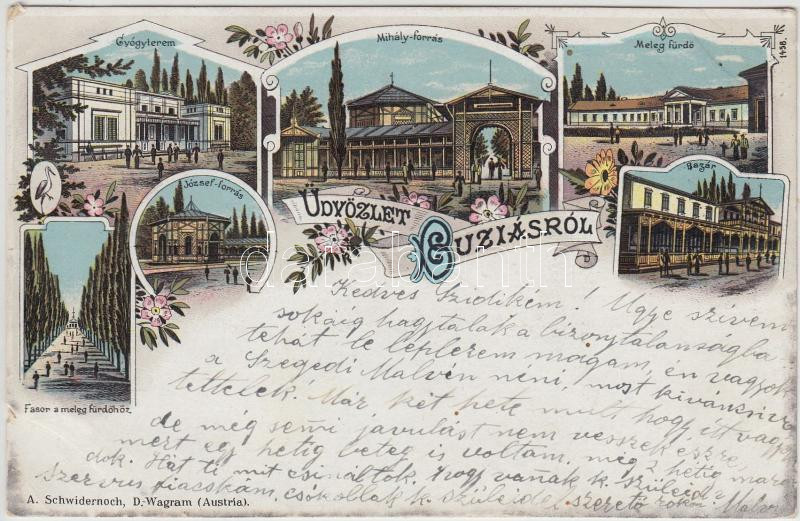 Gyógyterem
Mihály-forrás
Meleg fürdő
1498.
József-forrás
Bazár
ÜDVÖZLET BUZIÁSRÓL
Fasor a meleg fürdőhöz
darabanth
Kedves Szidikém! Ugye szívem
sokáig hagytalak a bizonytalanságba
tehát le leplezem magam, én vagyok
a Szegedi Malvén néni, most kíváncsivá
tettelek! Már két hete mult hogy itt vagyok
de még semi javulást nem veszek észre,
mert egy hétig beteg is voltam, még 2 hétig mara
dok. Hát ti mit csináltok, hogy vanak k. szüleid?
szervus fiacskám, csókollak k. szüleidel szerető Malvin
A. Schwidernoch, D.-Wagram (Austria).